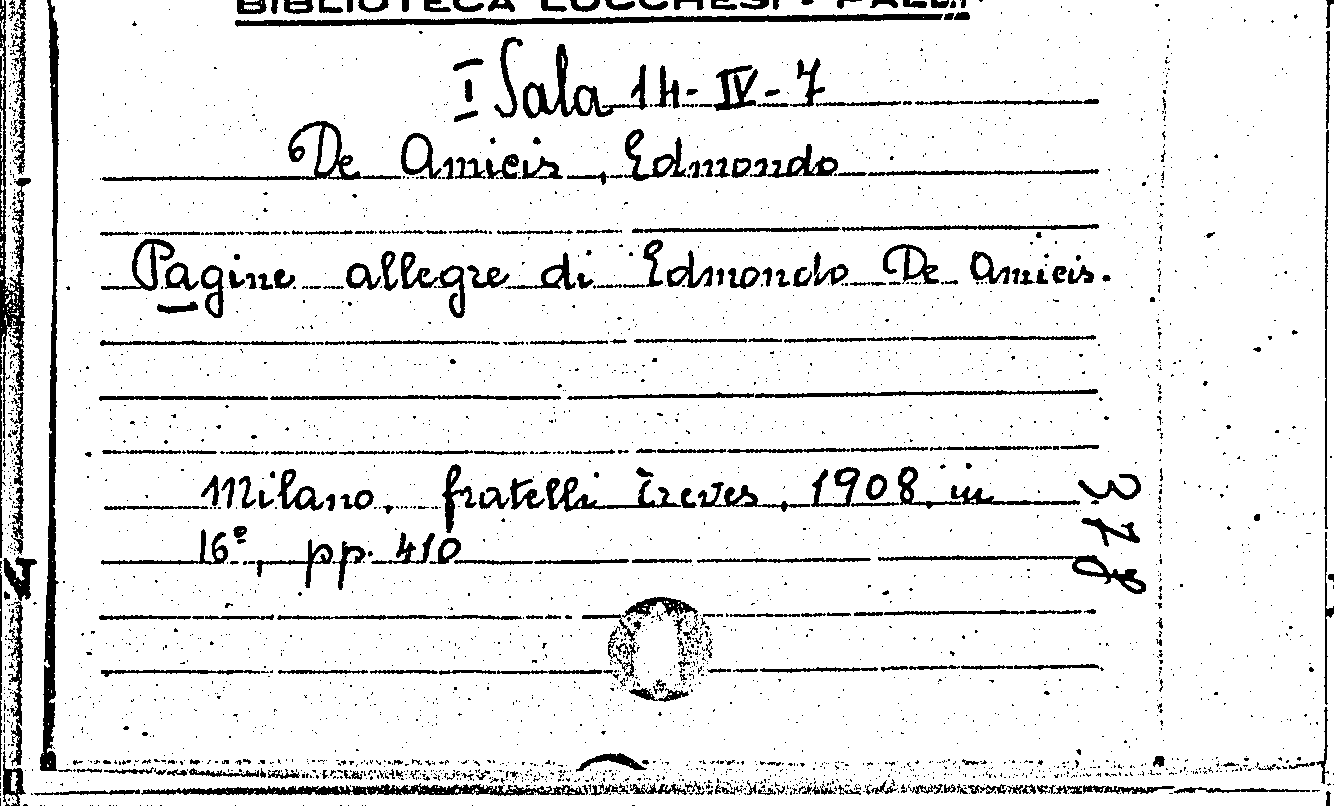 BIBLIOTECA LUCCHESI - PALLI
I Sala 14-IV-7
De Amicis, Edmondo
Pagine allegre di Edmondo De Amicis.
Milano, fratelli Treves, 1908, in
16º, pp. 410
378